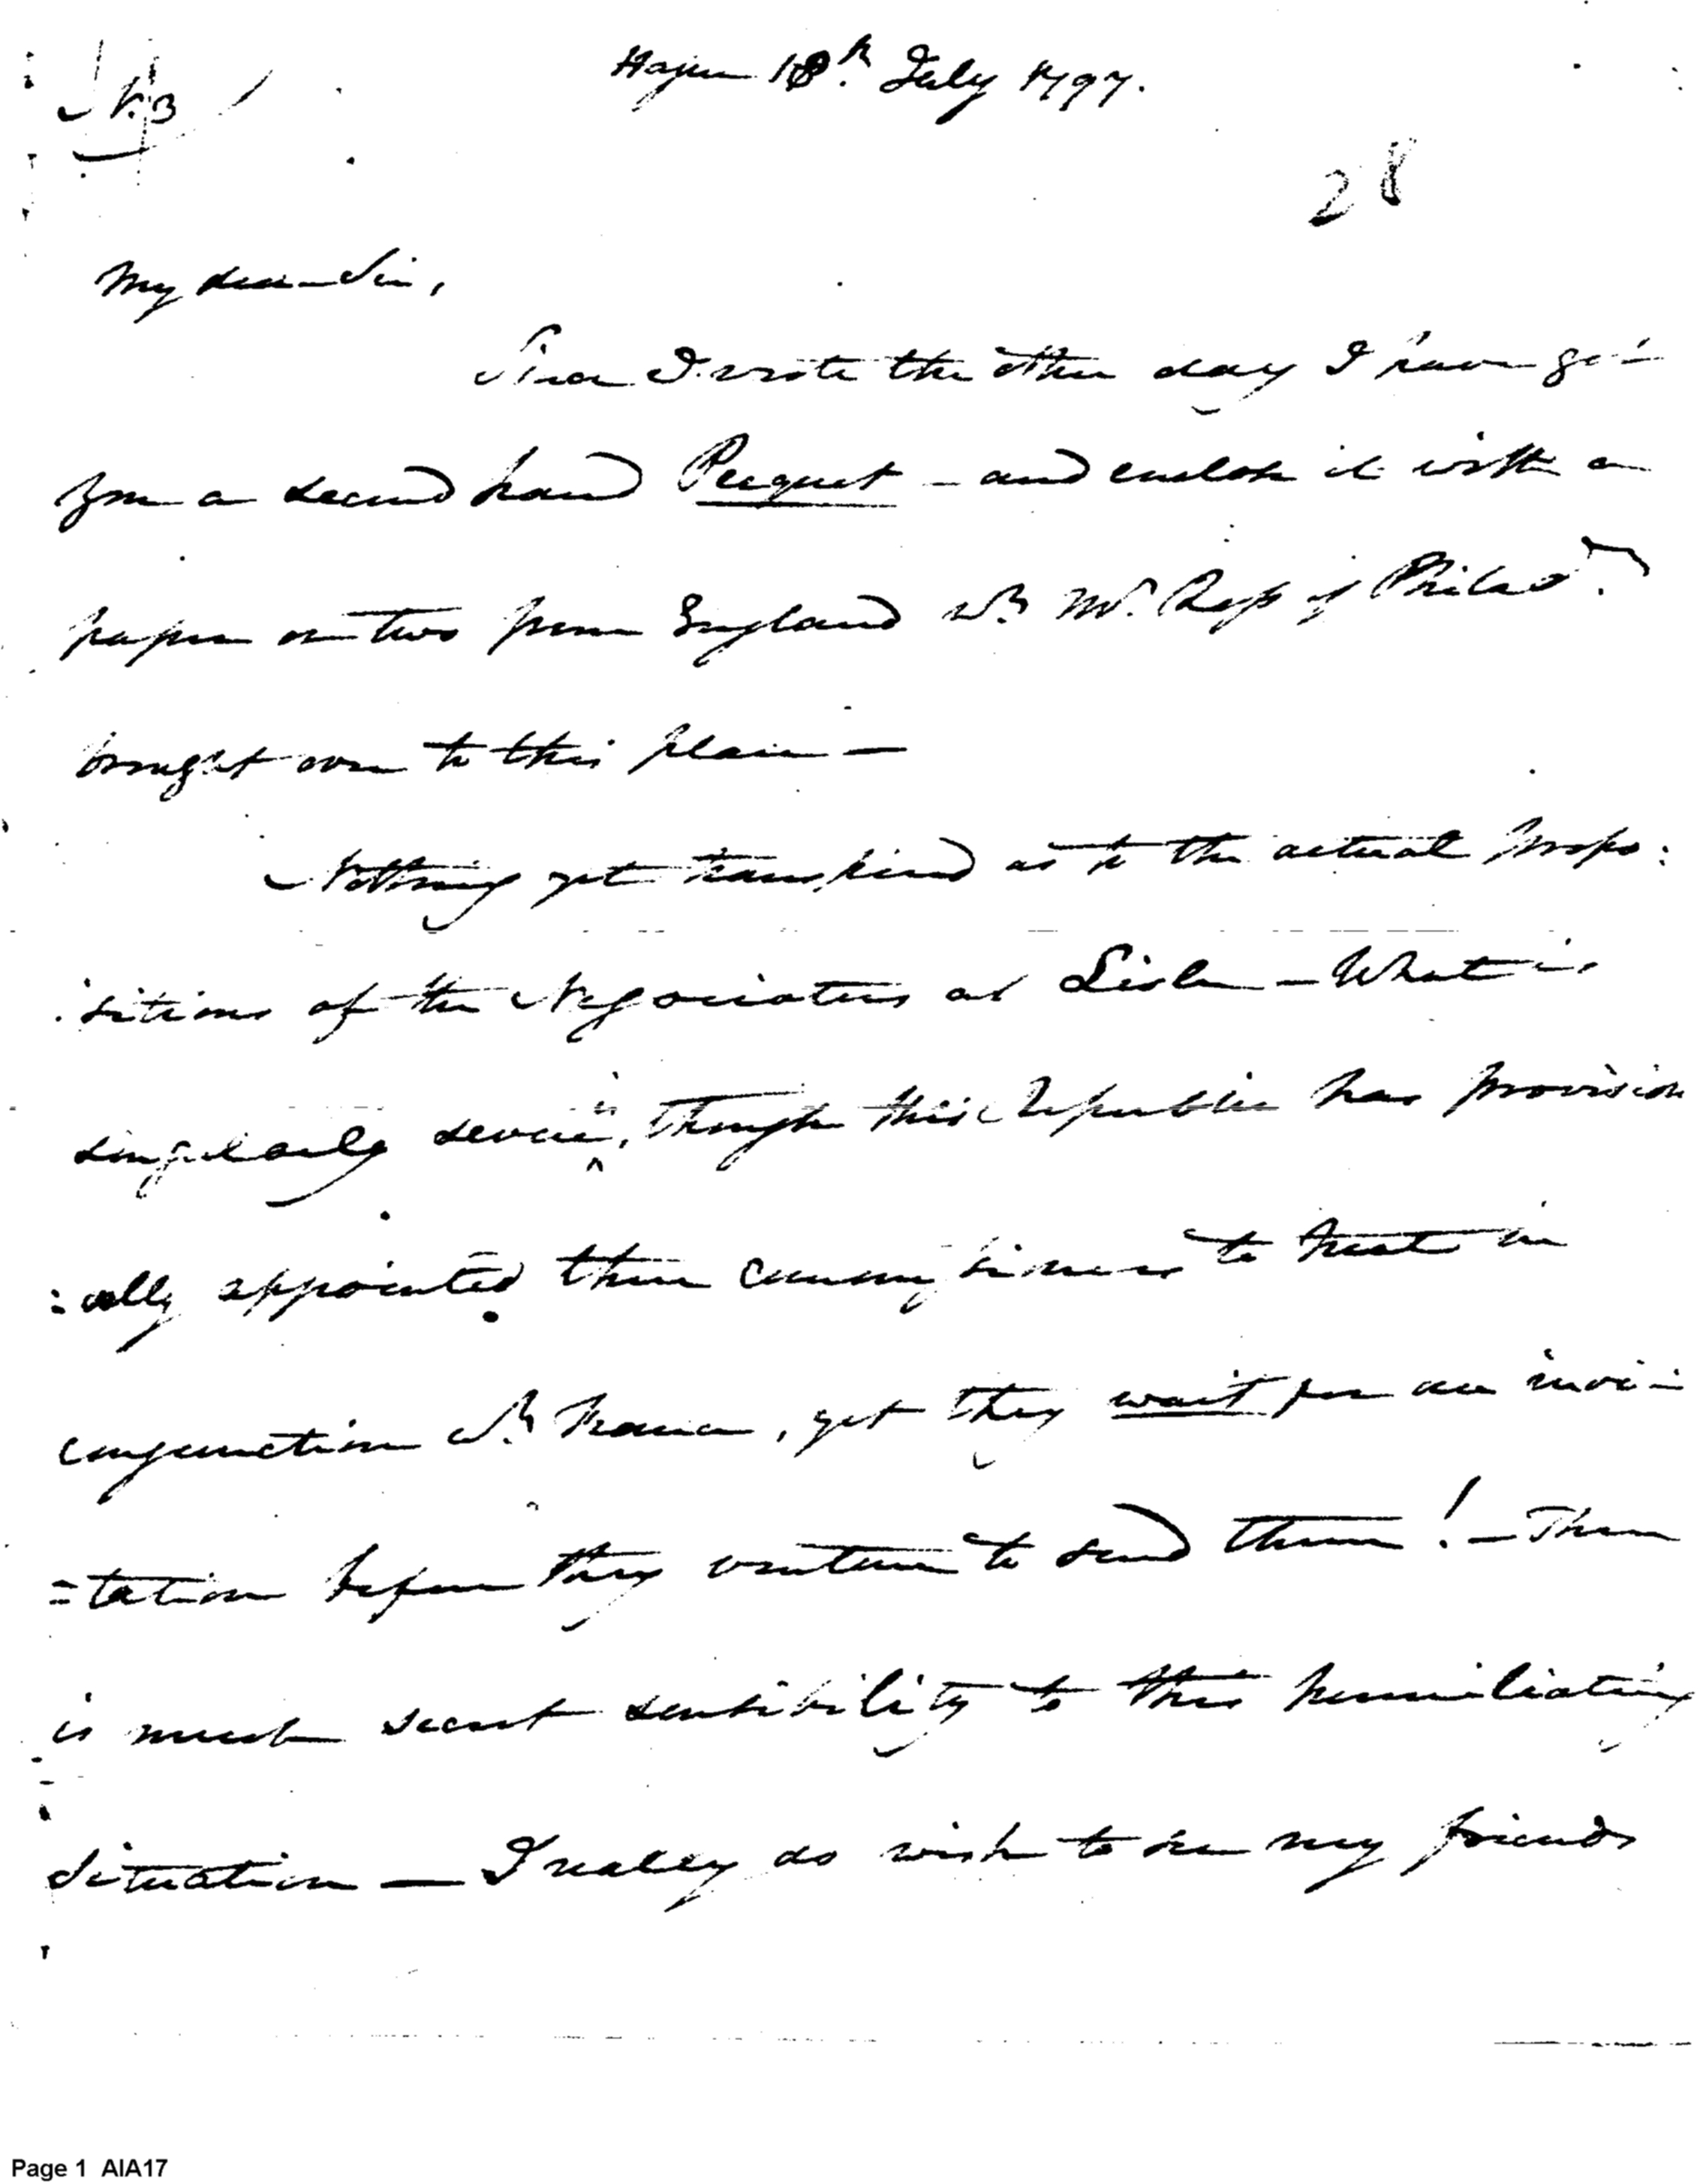 No. 3
Hague 18th July 1797.
28
My dear Sir,
Since I wrote the other day I have got
you a second hand Pecquet - and enclose it with a
paper or two from England wh. Mr. Ross of Philad.
brought over to this place —
Nothing yet transpired as to the actual propo:
:sitions of the Negociators at Lisle — What is
singularly severe is, though this Republic has provision
:ally appointed three commissioners to treat in
conjunction wh. France, yet they wait for an invi-
=tation before they venture to send them! — There
is much secret sensibility to this humiliating
situation — I really do wish to see my friends
Page 1 AIA17